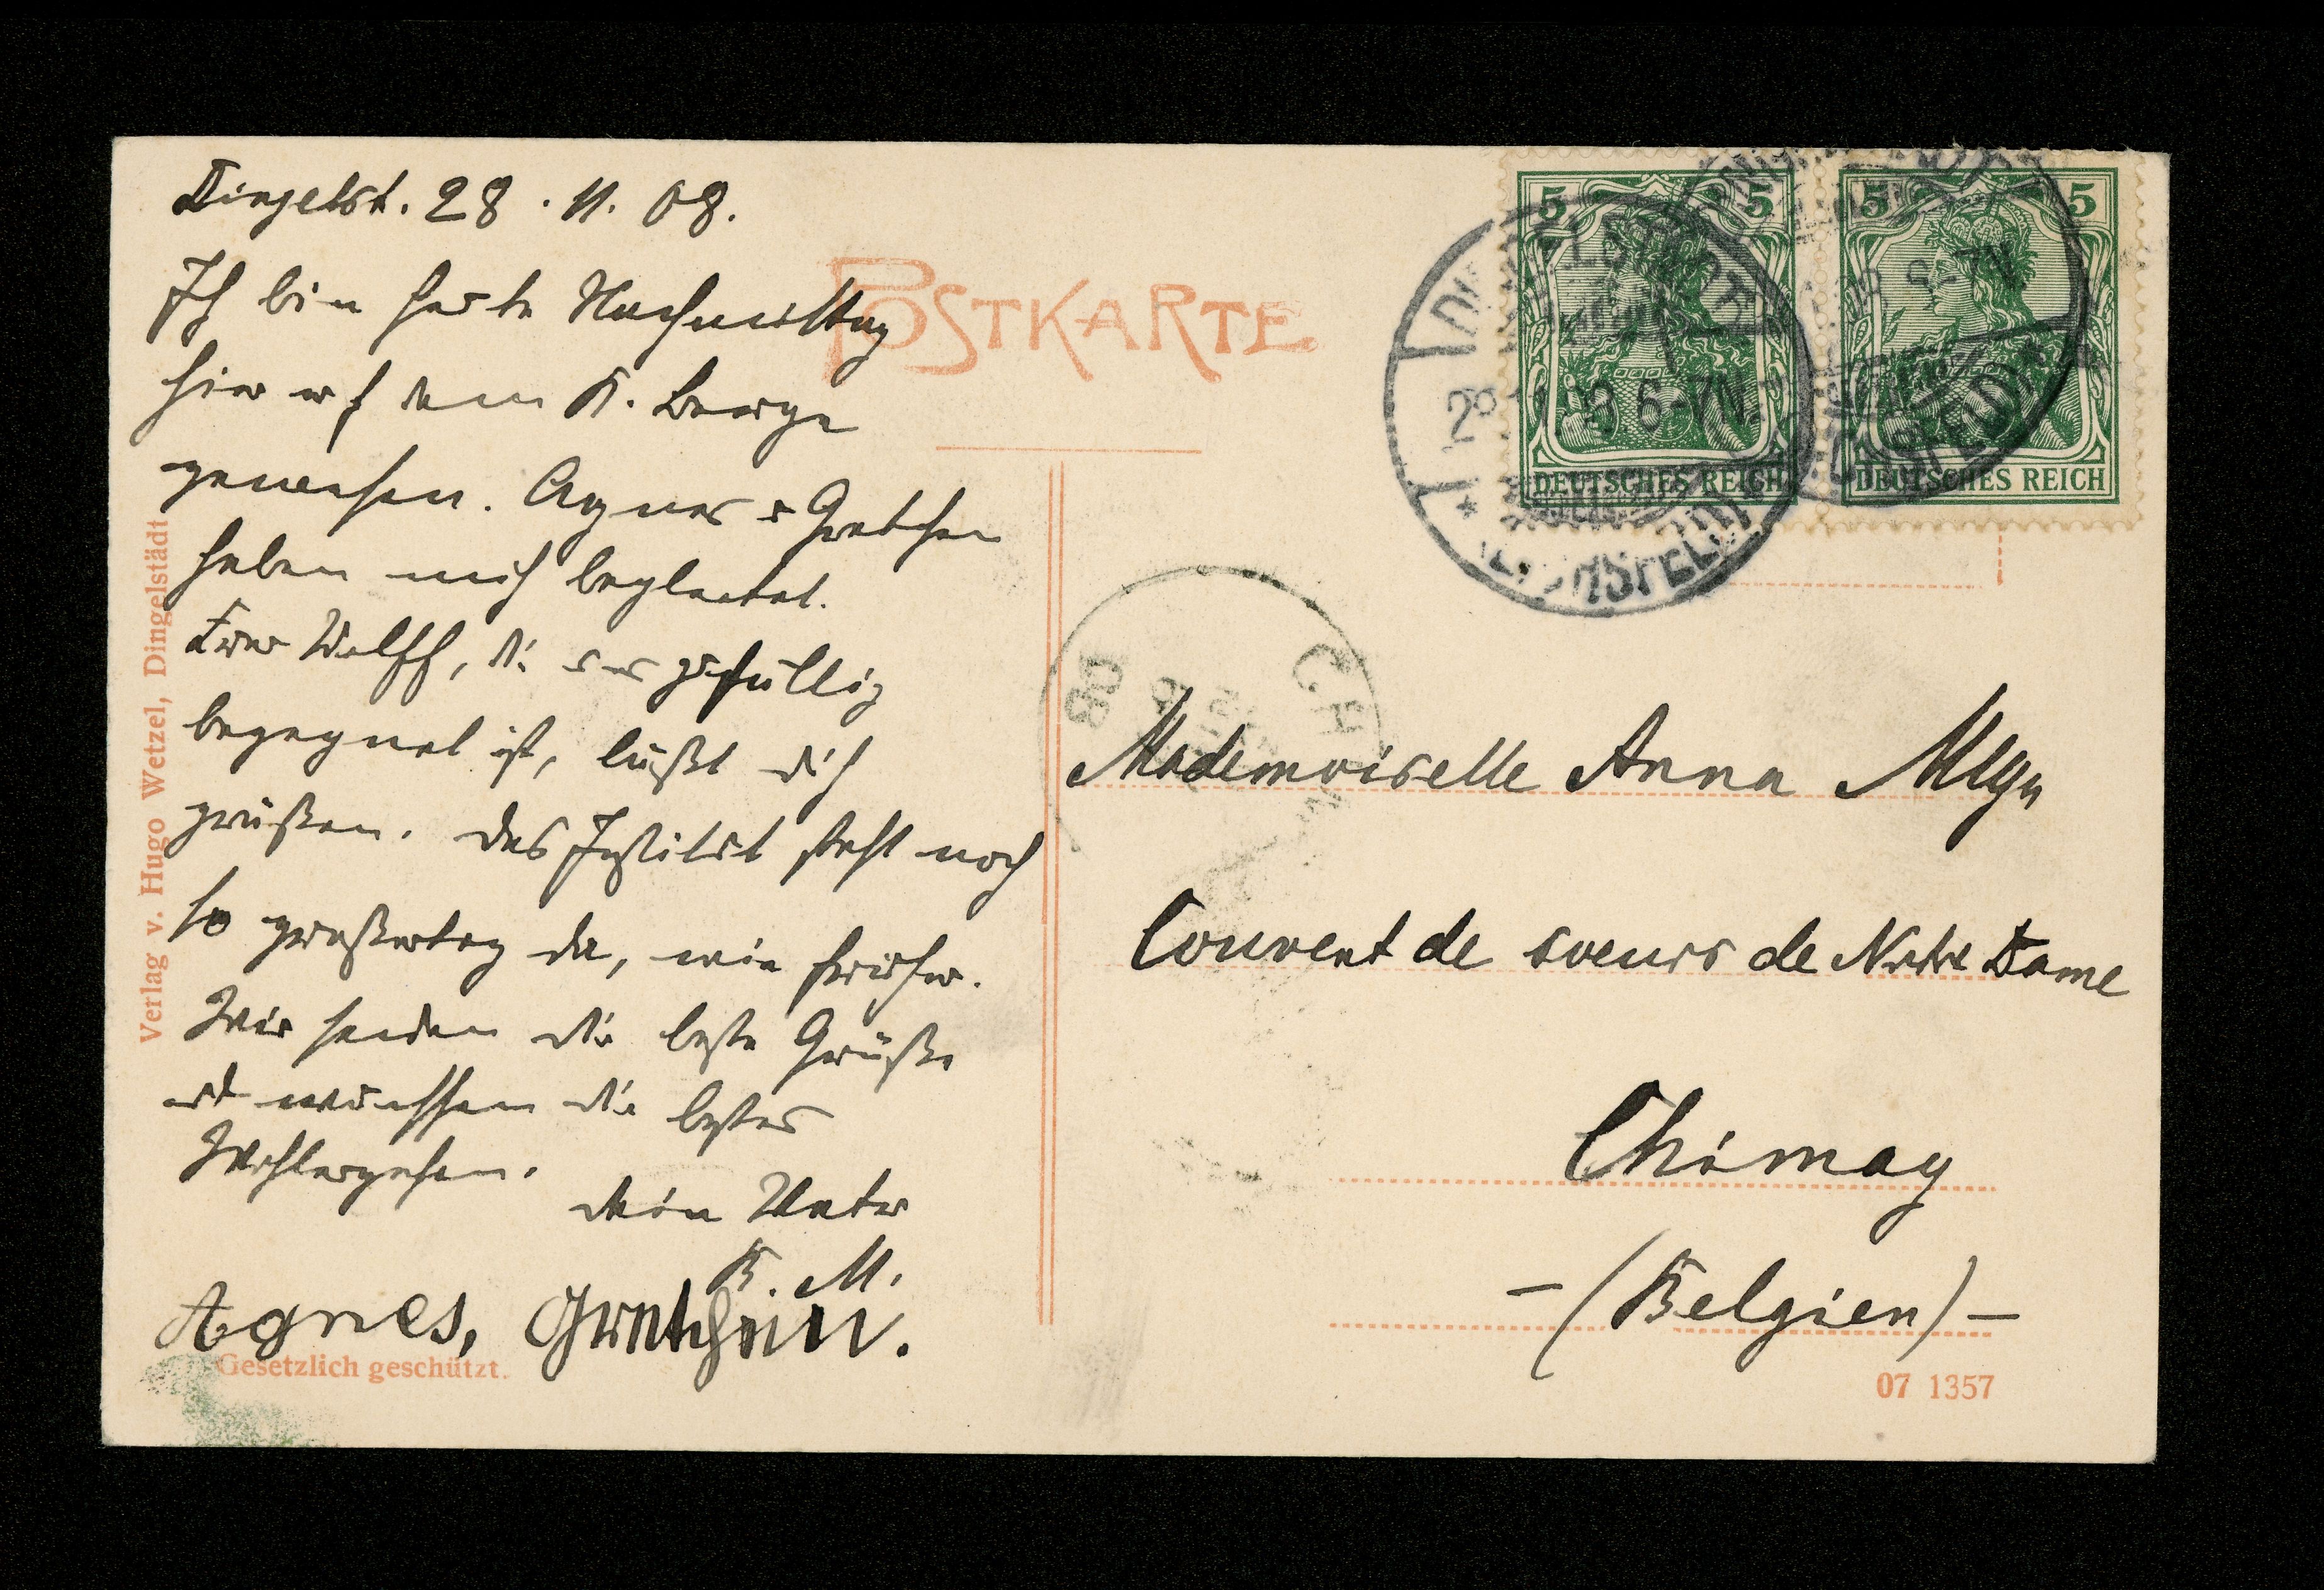 Dingelst. 28. 11. 08.
Ich bin heute Nachmittag
hier auf dem K. Berge
gewesen. Agnes u Gretchen
haben mich begleitet.
Frau Wolff, die uns zufällig
begegnet ist, läßt dich
grüßen. Das Institut steht noch
so großartig da, wie früher.
Wir senden dir beste Grüße
und wünschen dir bestes
Wohlergehen.
Dein Vater
K. M.
Agnes, Gretchen.
Verlag v. Hugo Wetzel, Dingelstädt
Gesetzlich geschützt.
POSTKARTE
5 5
DEUTSCHES REICH
6-7N.
5 5
DEUTSCHES REICH
6-7N
CH
08
Mademoiselle Anna
Couvent de soeurs de Notre Dame
Chimay
- (Belgien) -
07 1357